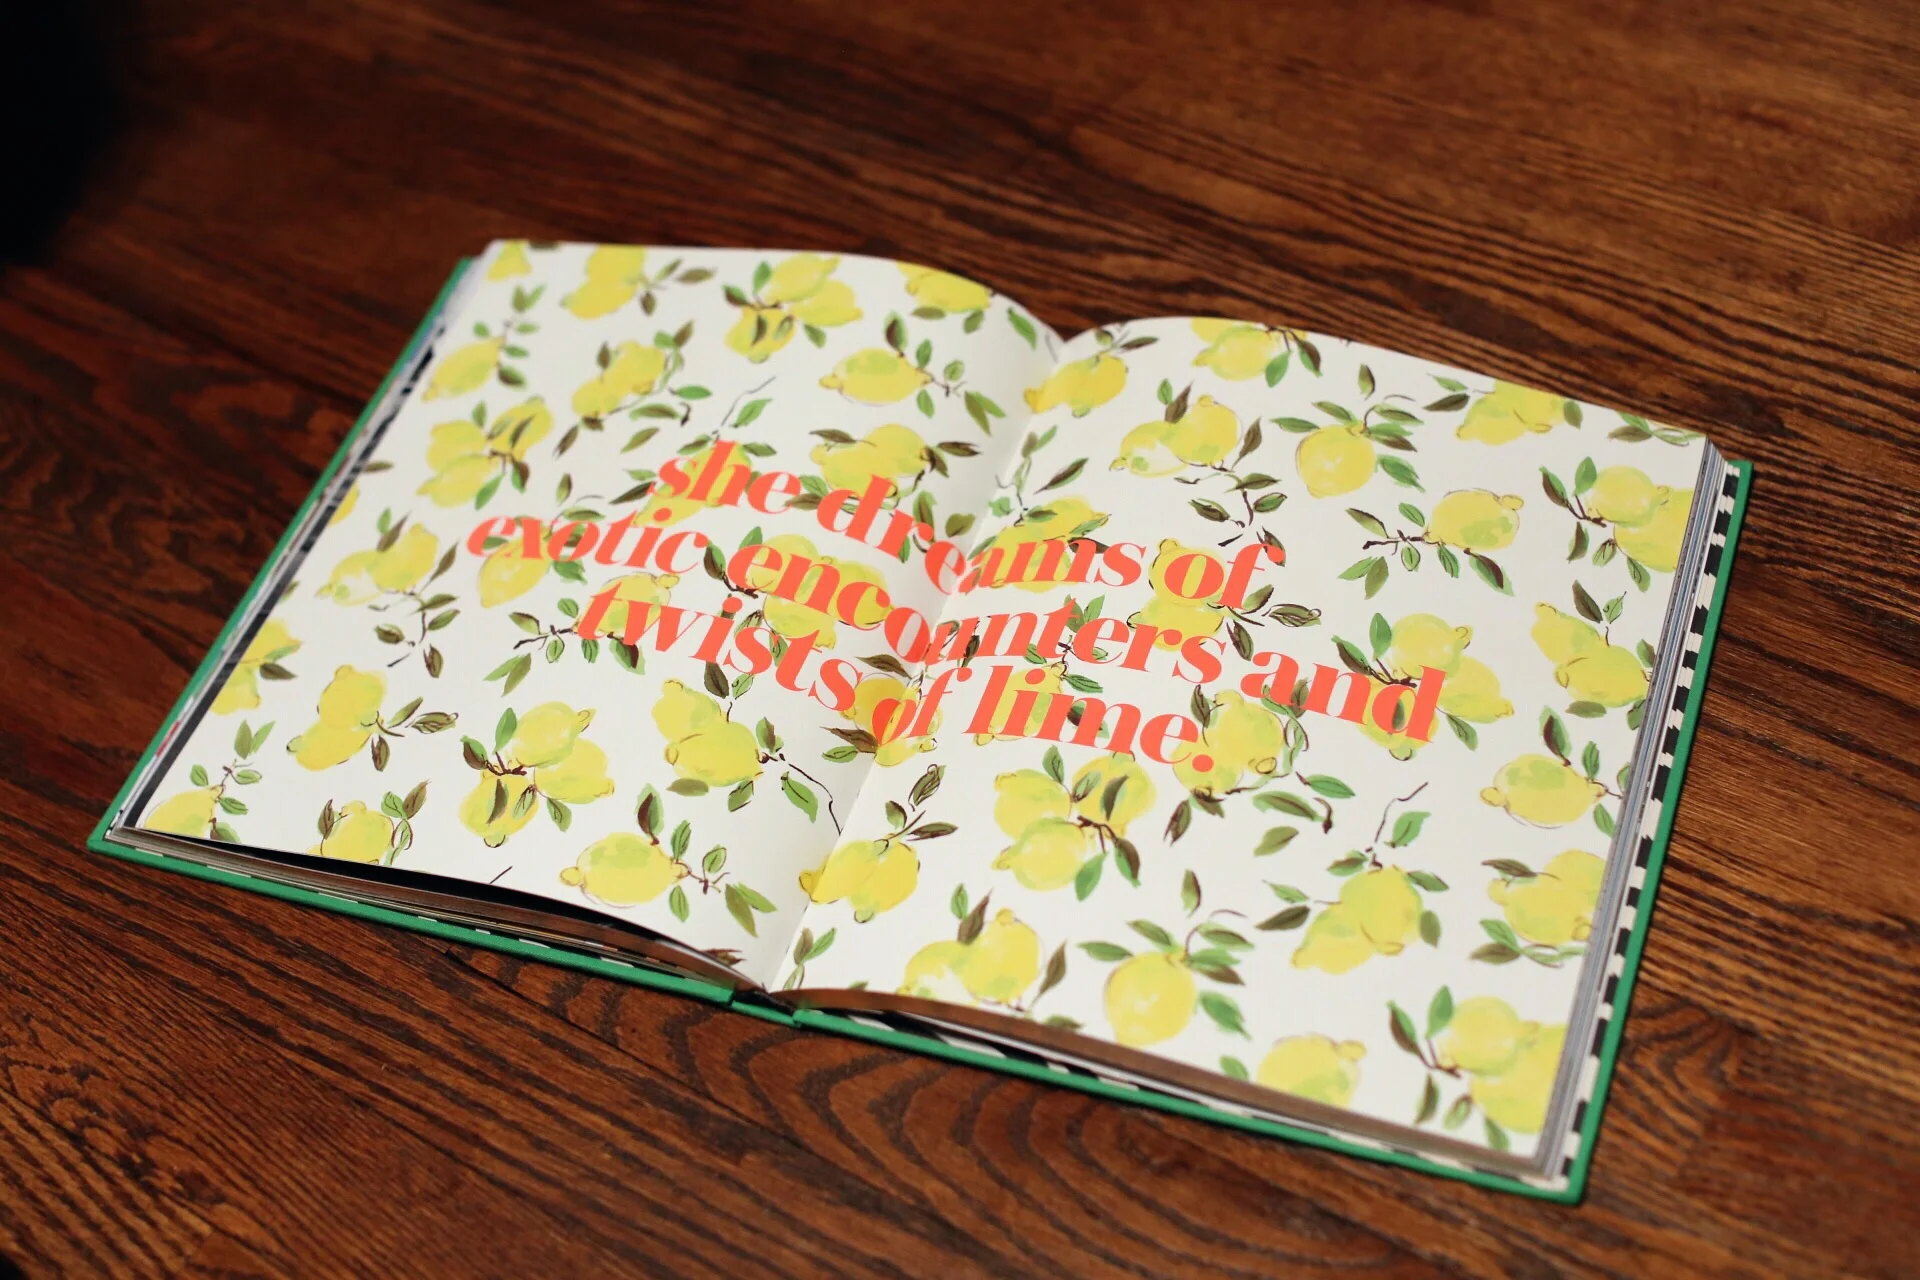 she dreams of
exotic encounters and
twists of lime.